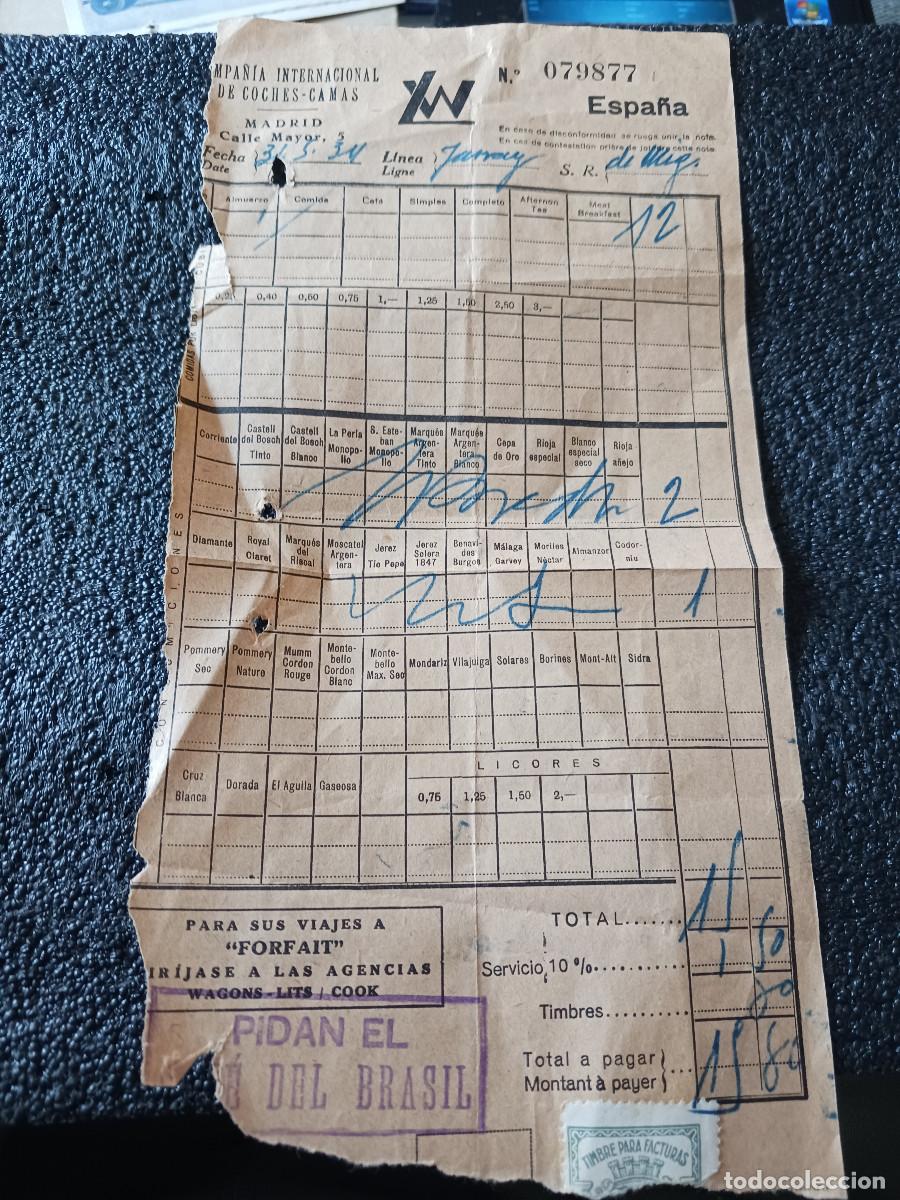 MPAÑÍA INTERNACIONAL
DE COCHES-CAMAS
MADRID
Calle Mayor, 5
N.º 079877
España
En caso de disconformidad se ruega unir la nota.
En cas de contestation prière de joindre cette note
Fecha 31.3.34 Línea S. R. de
Date Ligne
Almuerzo Comida Café Simples Completo Afternon Tea Meat Breakfast
1 12
0,40 0,50 0,75 1,— 1,25 1,50 2,50 3,—
Corriente Castell del Bosch Tinto Castell del Bosch Blanco La Perla Monopolio S. Esteban Monopolio Marqués Argentera Tinto Marqués Argentera Blanco Cepa de Oro Rioja especial Blanco especial seco Rioja añejo
2
Diamante Royal Claret Marqués del Riscal Moscatel Argentera Jerez Tío Pepe Jerez Solera 1847 Benavides Burgos Málaga Garvey Moriles Néctar Almanzor Codorniu
1
CONSUMICIONES
Pommery Sec Pommery Nature Mumm Cordon Rouge Montebello Cordon Blanc Montebello Max. Sec Mondariz Vilajuiga Solares Borines Mont-Alt Sidra
LICORES
Cruz Blanca Dorada El Aguila Gaseosa 0,75 1,25 1,50 2,—
PARA SUS VIAJES A
"FORFAIT"
IRÍJASE A LAS AGENCIAS
WAGONS-LITS / COOK
TOTAL...... 15
Servicio 10 %........ 1 50
Timbres..........
Total a pagar
Montant à payer
15 80
PIDAN EL
DEL BRASIL
TIMBRE PARA FACTURAS
todocoleccion